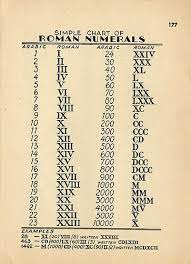 177
SIMPLE CHART OF
ROMAN NUMERALS
ARABIC ROMAN ARABIC ROMAN
1 I 24 XXIV
2 II 30 XXX
3 III 40 XL
4 IV 50 L
5 V 60 LX
6 VI 70 LXX
7 VII 80 LXXX
8 VIII 90 XC
9 IX 100 C
10 X 200 CC
11 XI 300 CCC
12 XII 400 CD
13 XIII 500 D
14 XIV 600 DC
15 XV 700 DCC
16 XVI 800 DCCC
17 XVII 900 CM
18 XVIII 1000 M
19 XIX 2000 MM
20 XX 3000 MMM
21 XXI 4000 MV̅
22 XXII 5000 V̅
23 XXIII 10000 X̅
EXAMPLES
28 — XX (20) VIII (8) WRITTEN XXVIII
463 — CD (400) LX (60) III (3) WRITTEN CDLXIII
M (1000) CD (400) XC (90) II (2) WRITTEN MCDXCII